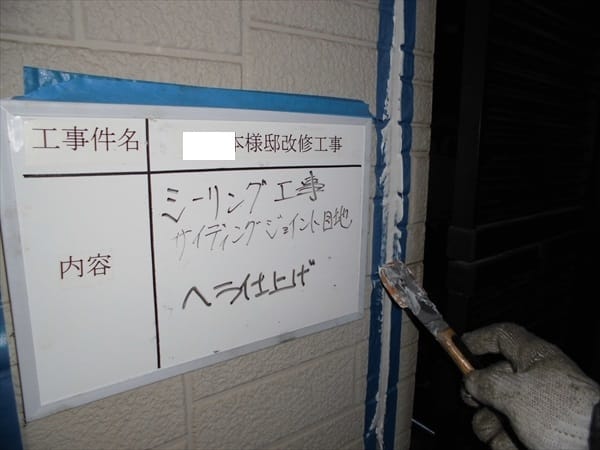 工事件名
本様邸改修工事
内容
シーリング工事
サイディングジョイント目地
ヘラ仕上げ